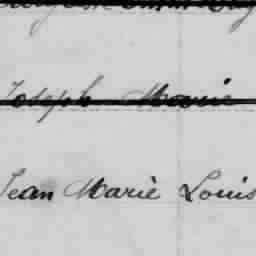 Joseph Marie
Jean Marie Louis